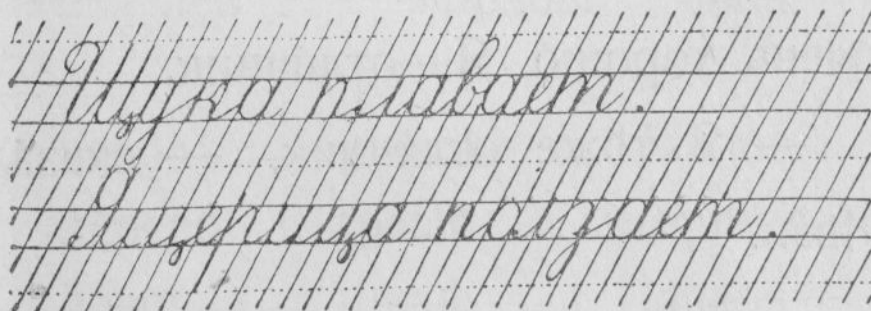 Щука плавает.
Ящерица ползает.